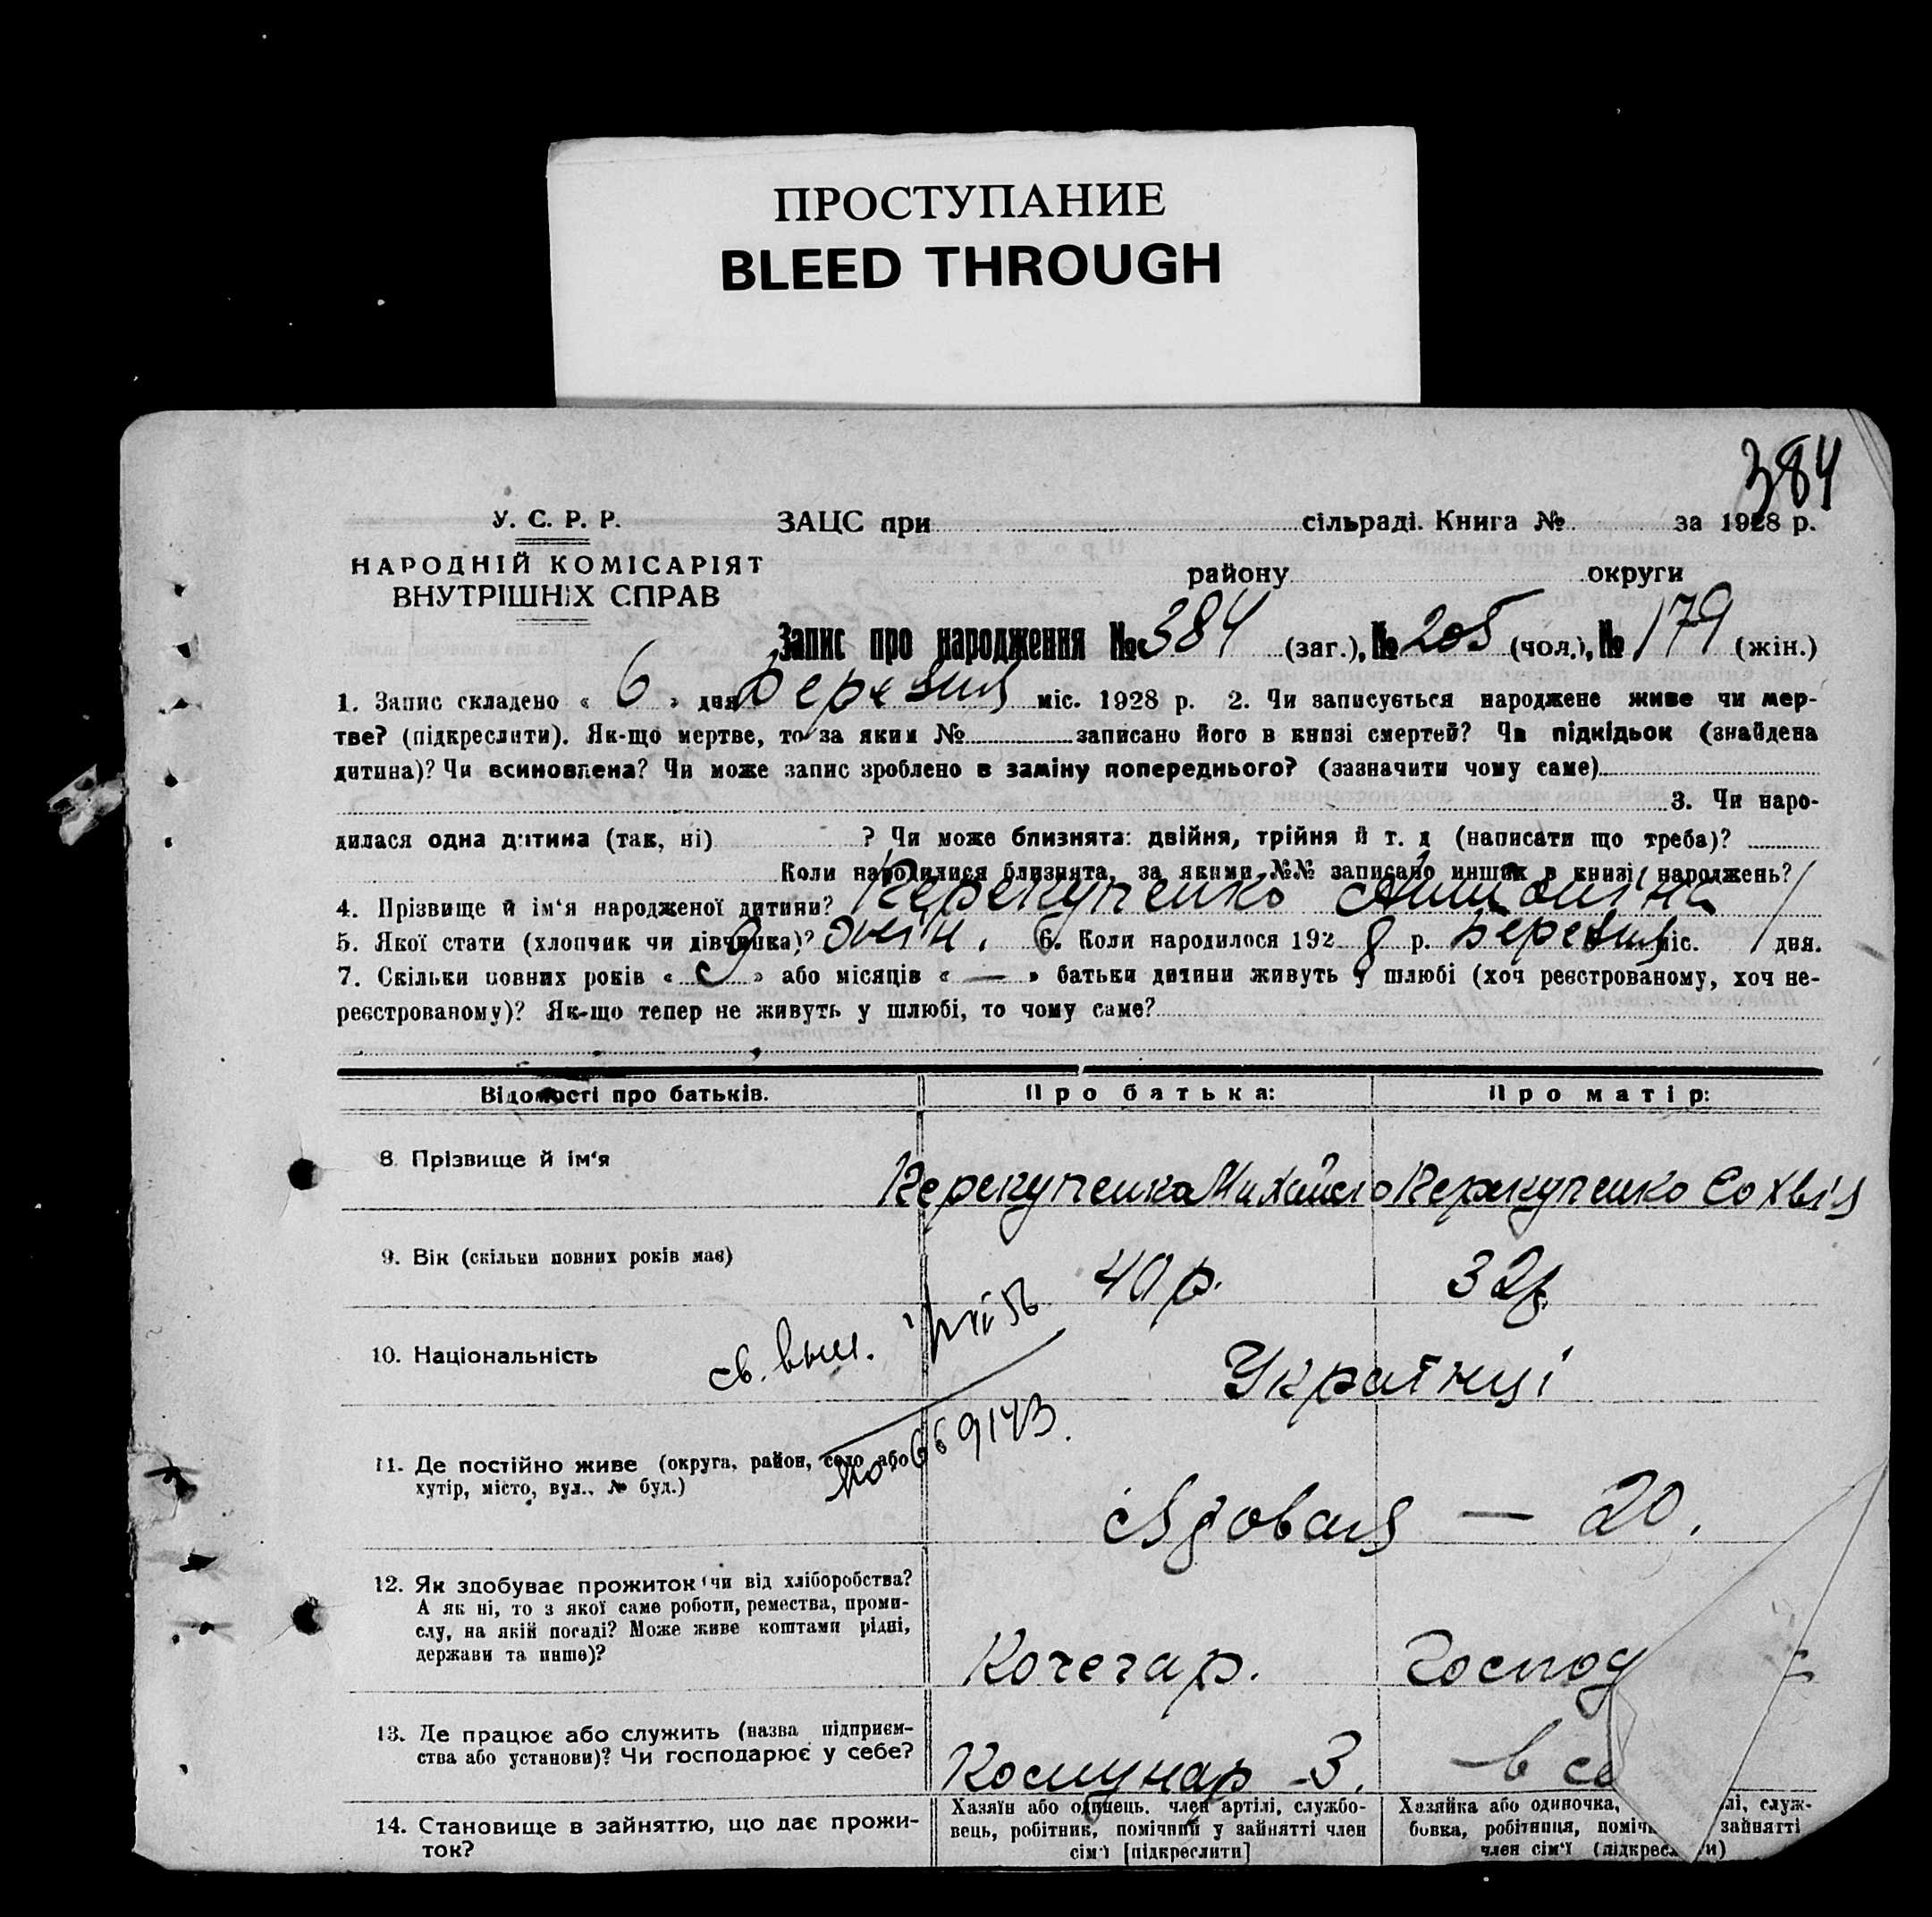 ПРОСТУПАНИЕ
BLEED THROUGH
384
У. С. Р. Р.
НАРОДНІЙ КОМІСАРІЯТ
ВНУТРІШНІХ СПРАВ
ЗАЦС при сільраді. Книга № за 1928 р.
району округи
Запис про народження № 384 (заг.), № 205 (чол.), № 179 (жін.)
1. Запис складено « 6 » дня березня міс. 1928 р. 2. Чи записується народжене живе чи мер-
тве? (підкреслити). Як-що мертве, то за яким № записано його в книзі смертей? Чи підкідьок (знайдена
дитина)? Чи всиновлена? Чи може запис зроблено в заміну попереднього? (зазначити чому саме)
3. Чи наро-
дилася одна дитина (так, ні) ? Чи може близнята: двійня, трійня й т. д (написати що треба)?
Коли народилися близнята, за якими №№ записано инших в книзі народжень?
4. Прізвище й ім‘я народженої дитини? Перекупенко
5. Якої стати (хлопчик чи дівчинка)? жін. 6. Коли народилося 1928 р. Березня міс. 1 дня.
7. Скільки повних років « » або місяців « — » батьки дитини живуть у шлюбі (хоч реєстрованому, хоч не-
реєстрованому)? Як-що тепер не живуть у шлюбі, то чому саме?
Відомості про батьків. Про батька: Про матір:
8. Прізвище й ім‘я Перекупенко Михайло Перекупенко Сохвія
9. Вік (скільки повних років має) 40 р. 32 р.
10. Національність Українці
св. вып.
669143.
11. Де постійно живе (округа, район, село або
хутір, місто, вул., № буд.)
— 20.
12. Як здобуває прожиток (чи від хліборобства?
А як ні, то з якої саме роботи, ремества, проми-
слу, на якій посаді? Може живе коштами рідні,
держави та инше)?
Кочегар. Господ
13. Де працює або служить (назва підприєм-
ства або установи)? Чи господарює у себе?
Комунар З. в се
14. Становище в зайняттю, що дає прожи-
ток?
Хазяїн або одинець, член артілі, службо-
вець, робітник, помічний у зайнятті член
сім‘ї [підкреслити]
Хазяйка або одиночка, лі, служ-
бовка, робітниця, поміч зайнятті
член сім‘ї (підкресл и)